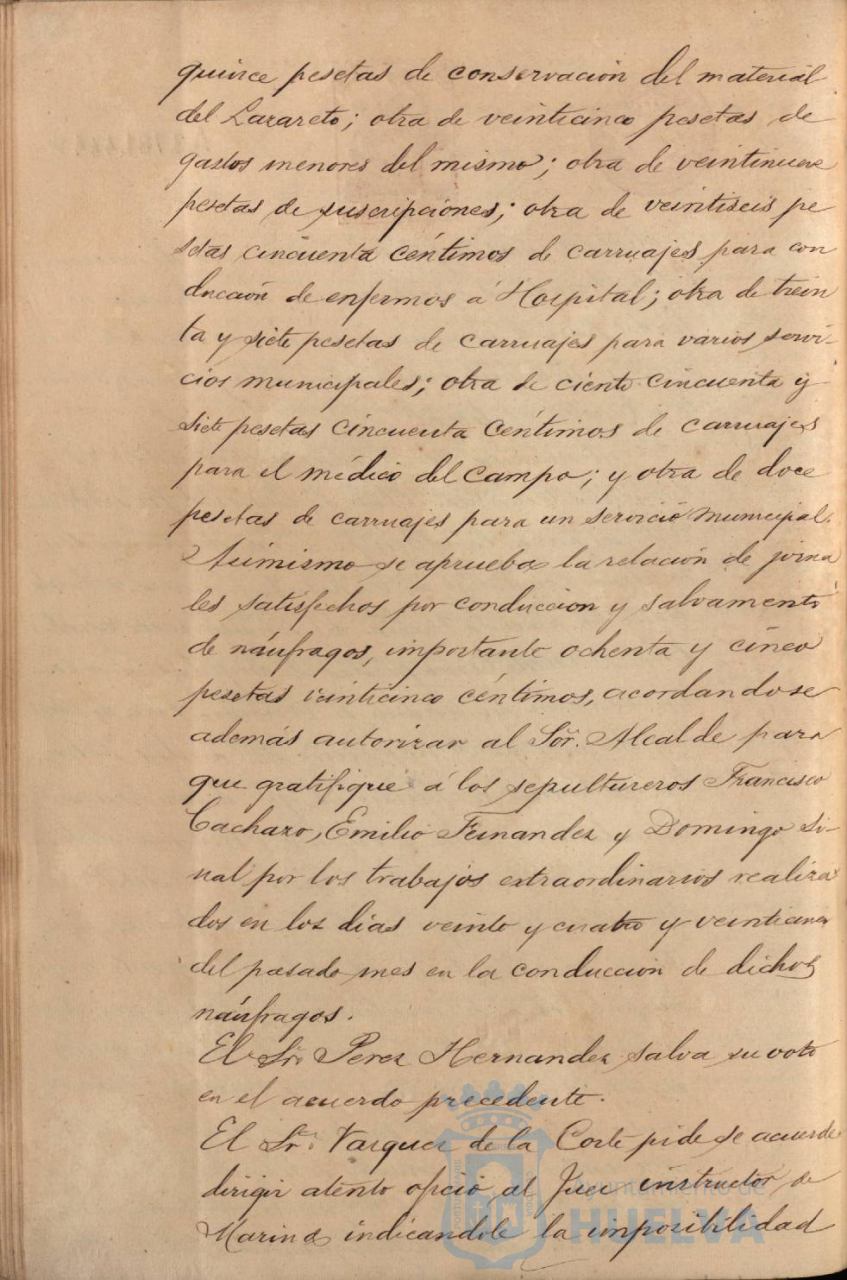 quince pesetas de conservación del material
del Lazareto; otra de veinticinco pesetas de
gastos menores del mismo; otra de veintinueve
pesetas de suscripciones; otra de veintiseis pe
setas cincuenta céntimos de carruajes para con
ducción de enfermos á Hospital; otra de trein
ta y siete pesetas de carruajes para varios servi-
cios municipales; otra de ciento cincuenta y
siete pesetas cincuenta céntimos de carruajes
para el médico del campo; y otra de doce
pesetas de carruajes para un servicio municipal.
Asimismo se aprueba la relación de jorna
les satisfechos por conduccion y salvamento
de náufragos, importante ochenta y cinco
pesetas veinticinco céntimos, acordandose
además autorizar al Sor. Alcalde para
que gratifique á los sepultureros Francisco
Cacharo, Emilio Fernandez y Domingo Si-
nal por los trabajos extraordinarios realiza
dos en los días veinte y cuatro y veinticinco
del pasado mes en la conduccion de dichos
náufragos.
El Sr. Perez Hernandez salva su voto
en el acuerdo precedente.
El Sr. Vazquez de la Corte pide se acuerde
dirigir atento oficio al Juez instructor de
Marina indicandole la imposibilidad
Ayuntamiento de
HUELVA